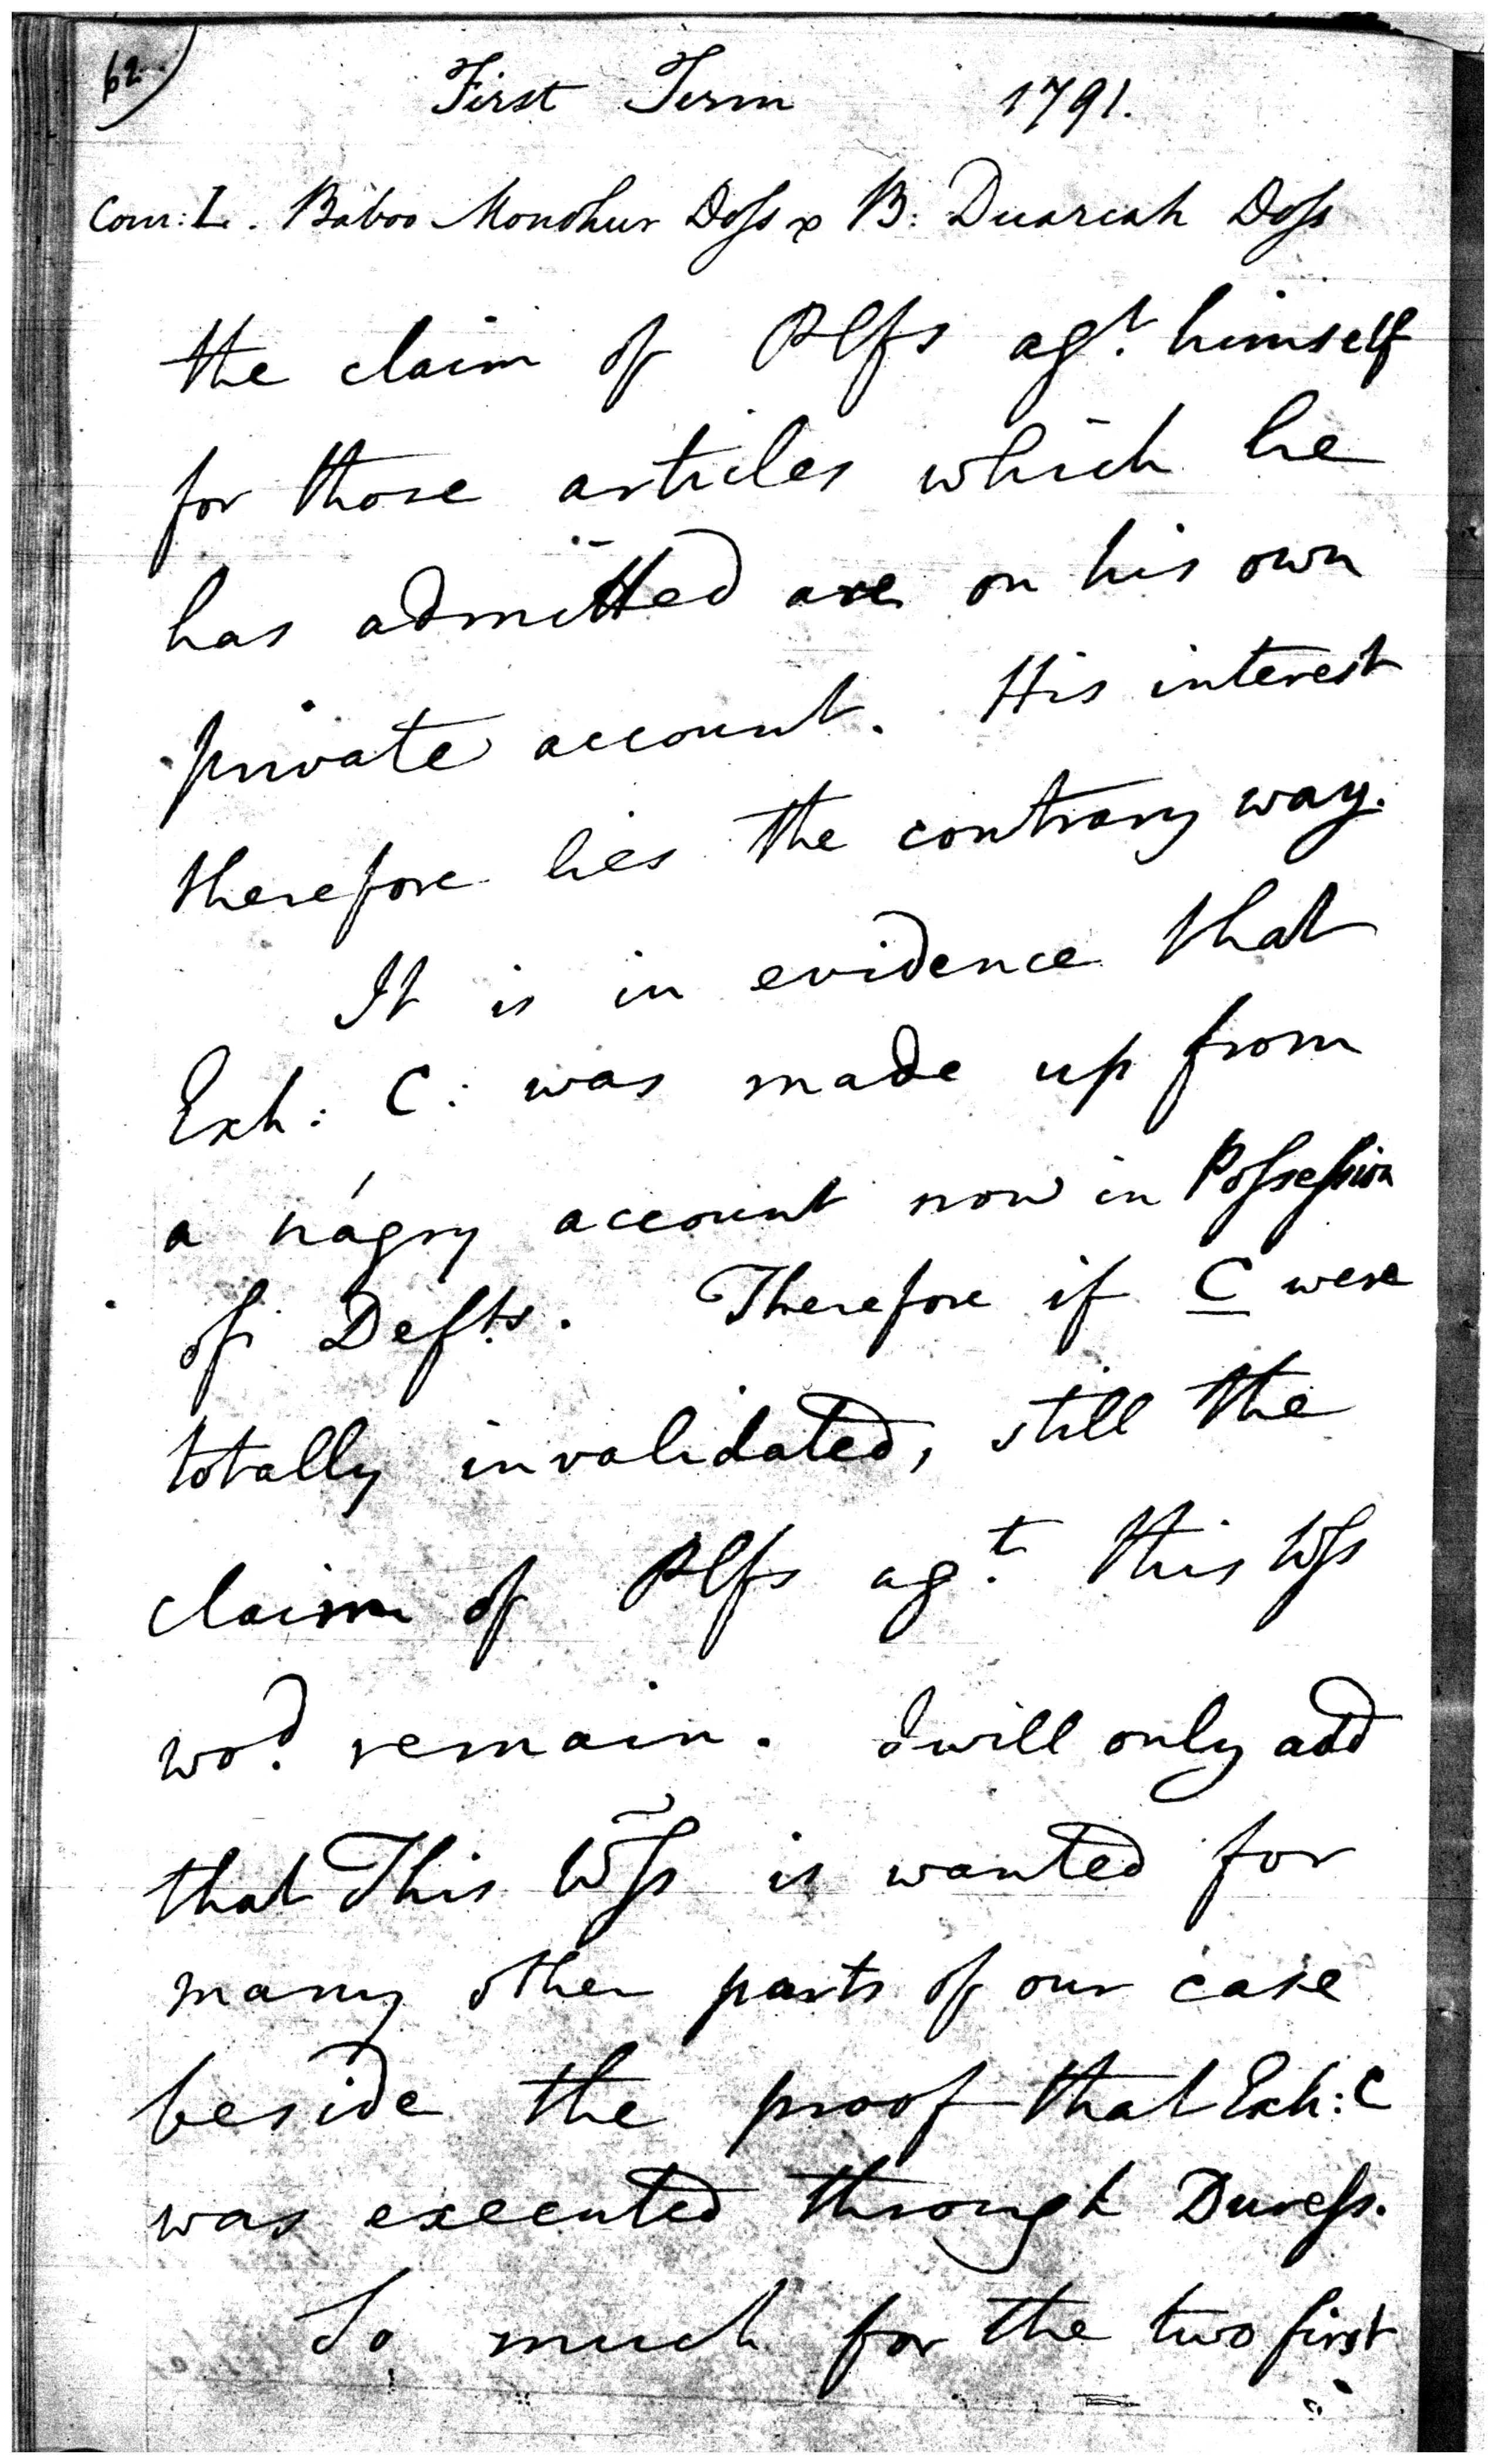 62.
First Term 1791.
Com: L. Baboo Monohur Doss x B: Duarcah Doss
the claim of Plfs agt. himself
for those articles which he
has admitted are on his own
private account. His interest
therefore lies the contrary way.
It is in evidence that
Exh: C: was made up from
a nágry account now in Possession
of Defts. Therefore if C were
totally invalidated, still the
claim of Plfs agt. this Wss
wod. remain. I will only add
that This Wss is wanted for
many other parts of our case
beside the proof that Exh: C
was executed through Duress.
So much for the two first